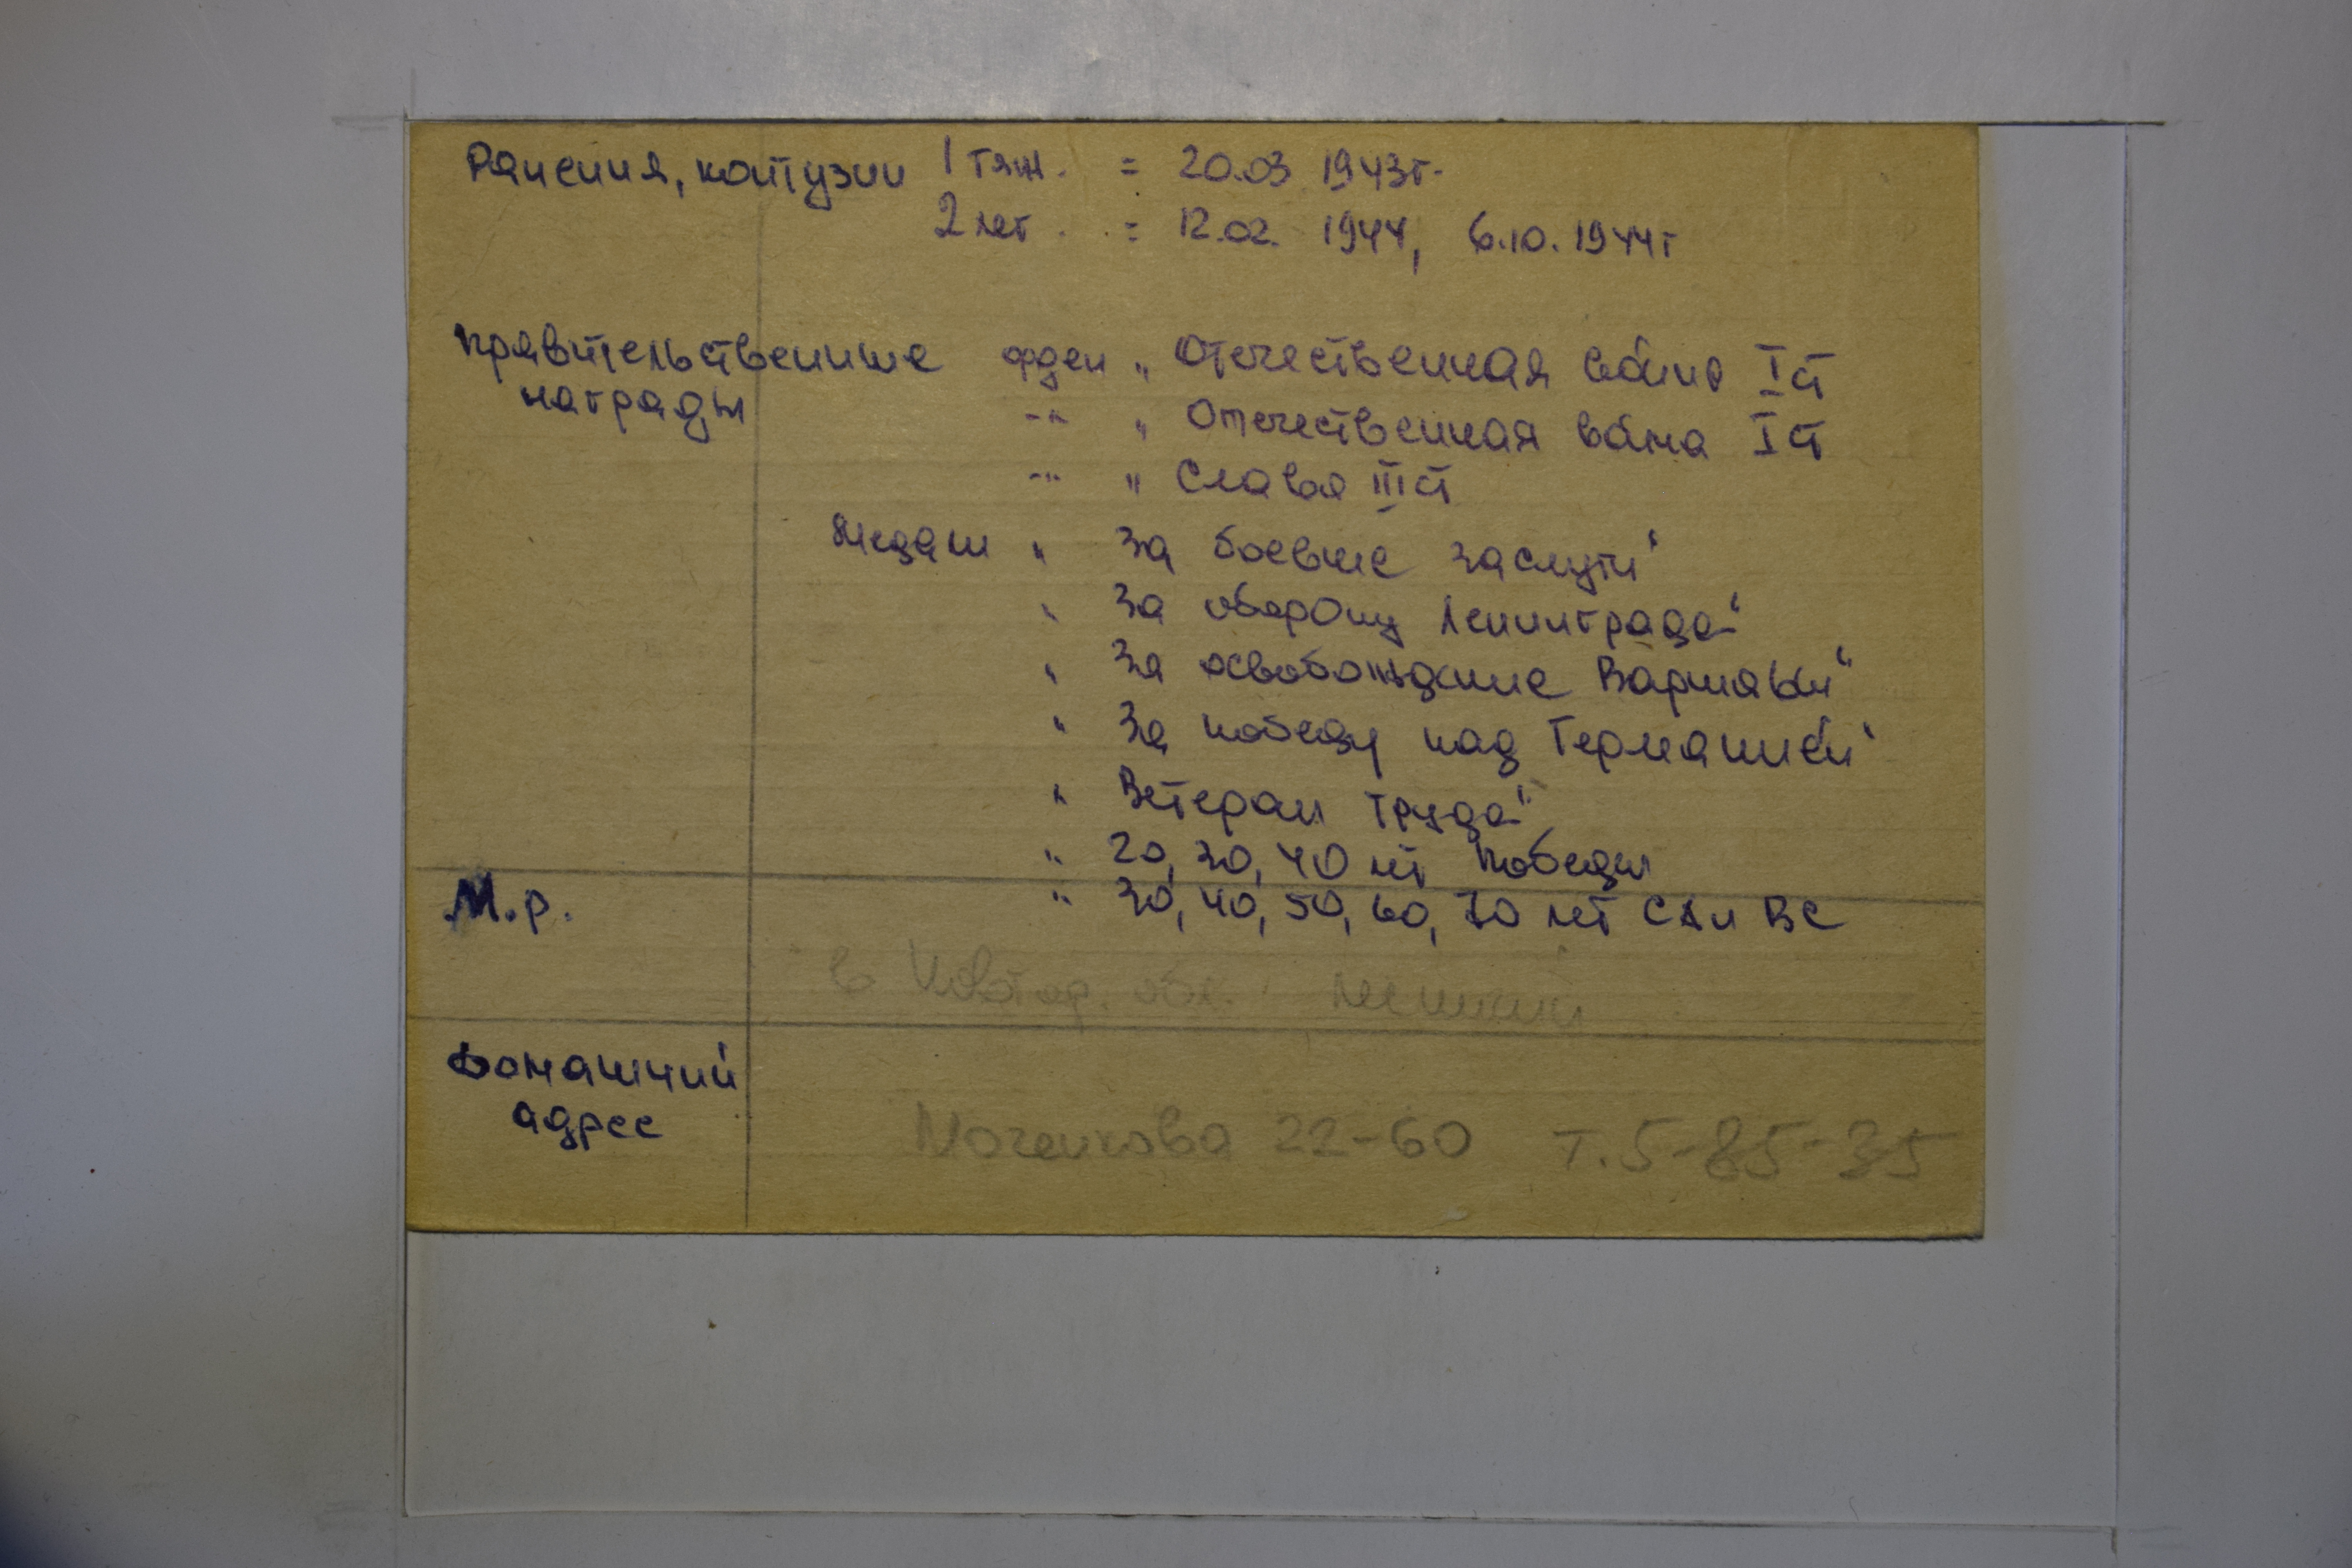 Ранения, контузии 1 тяж. = 20.03 1943г.
2 лег. = 12.02. 1944, 6.10. 1944г
Правительственные орден „ Отечественная война I ст
награды -"- „ Отечественная война I ст
-"- „ Славы III ст
Медали „ За боевые заслуги"
„ За оборону Ленинграда"
„ За освобождение Варшавы"
„ За победу над Германией"
„ Ветеран труда"
„ 20, 30, 40 лет Победы
М.р. „ 30, 40, 50, 60, 70 лет СА и ВС
в обл.
Домашний
адрес Моченкова 22-60 т. 5-85-35